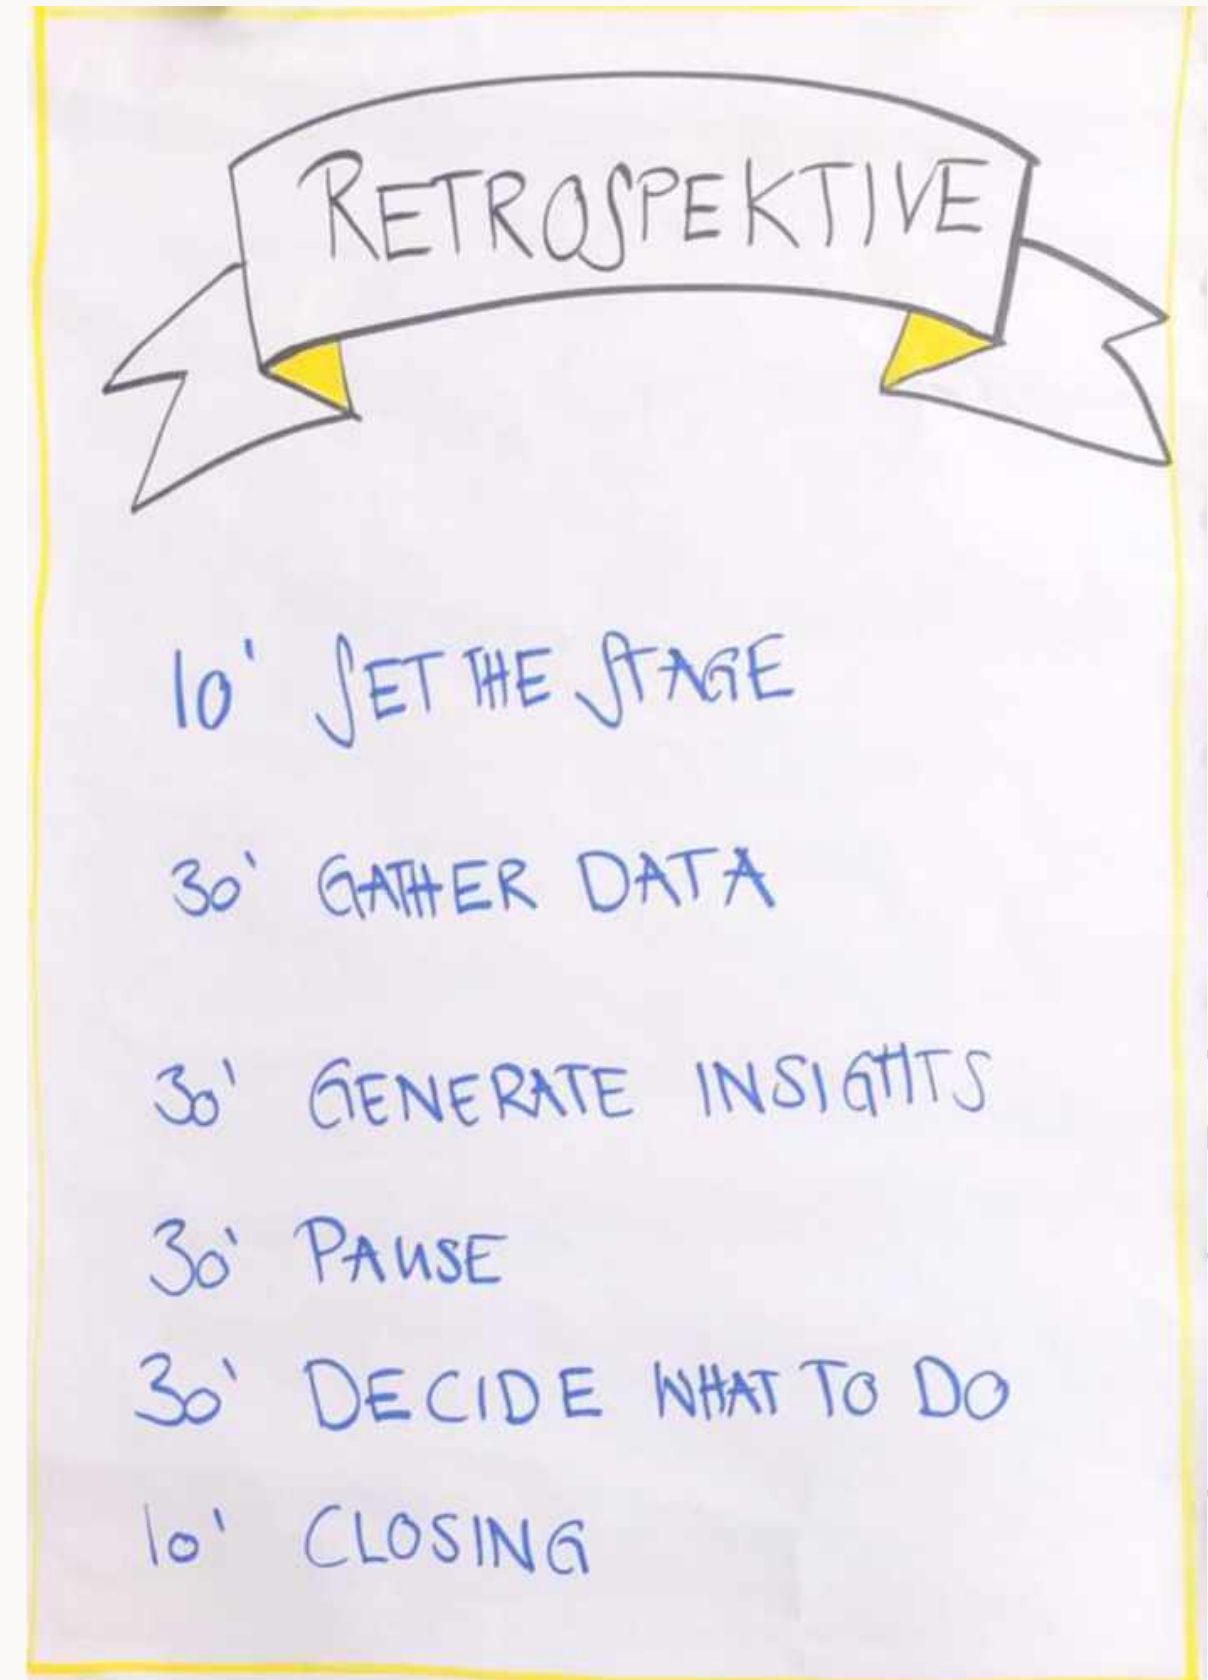 RETROSPEKTIVE
10' SET THE STAGE
30' GATHER DATA
30' GENERATE INSIGHTS
30' PAUSE
30' DECIDE WHAT TO DO
10' CLOSING